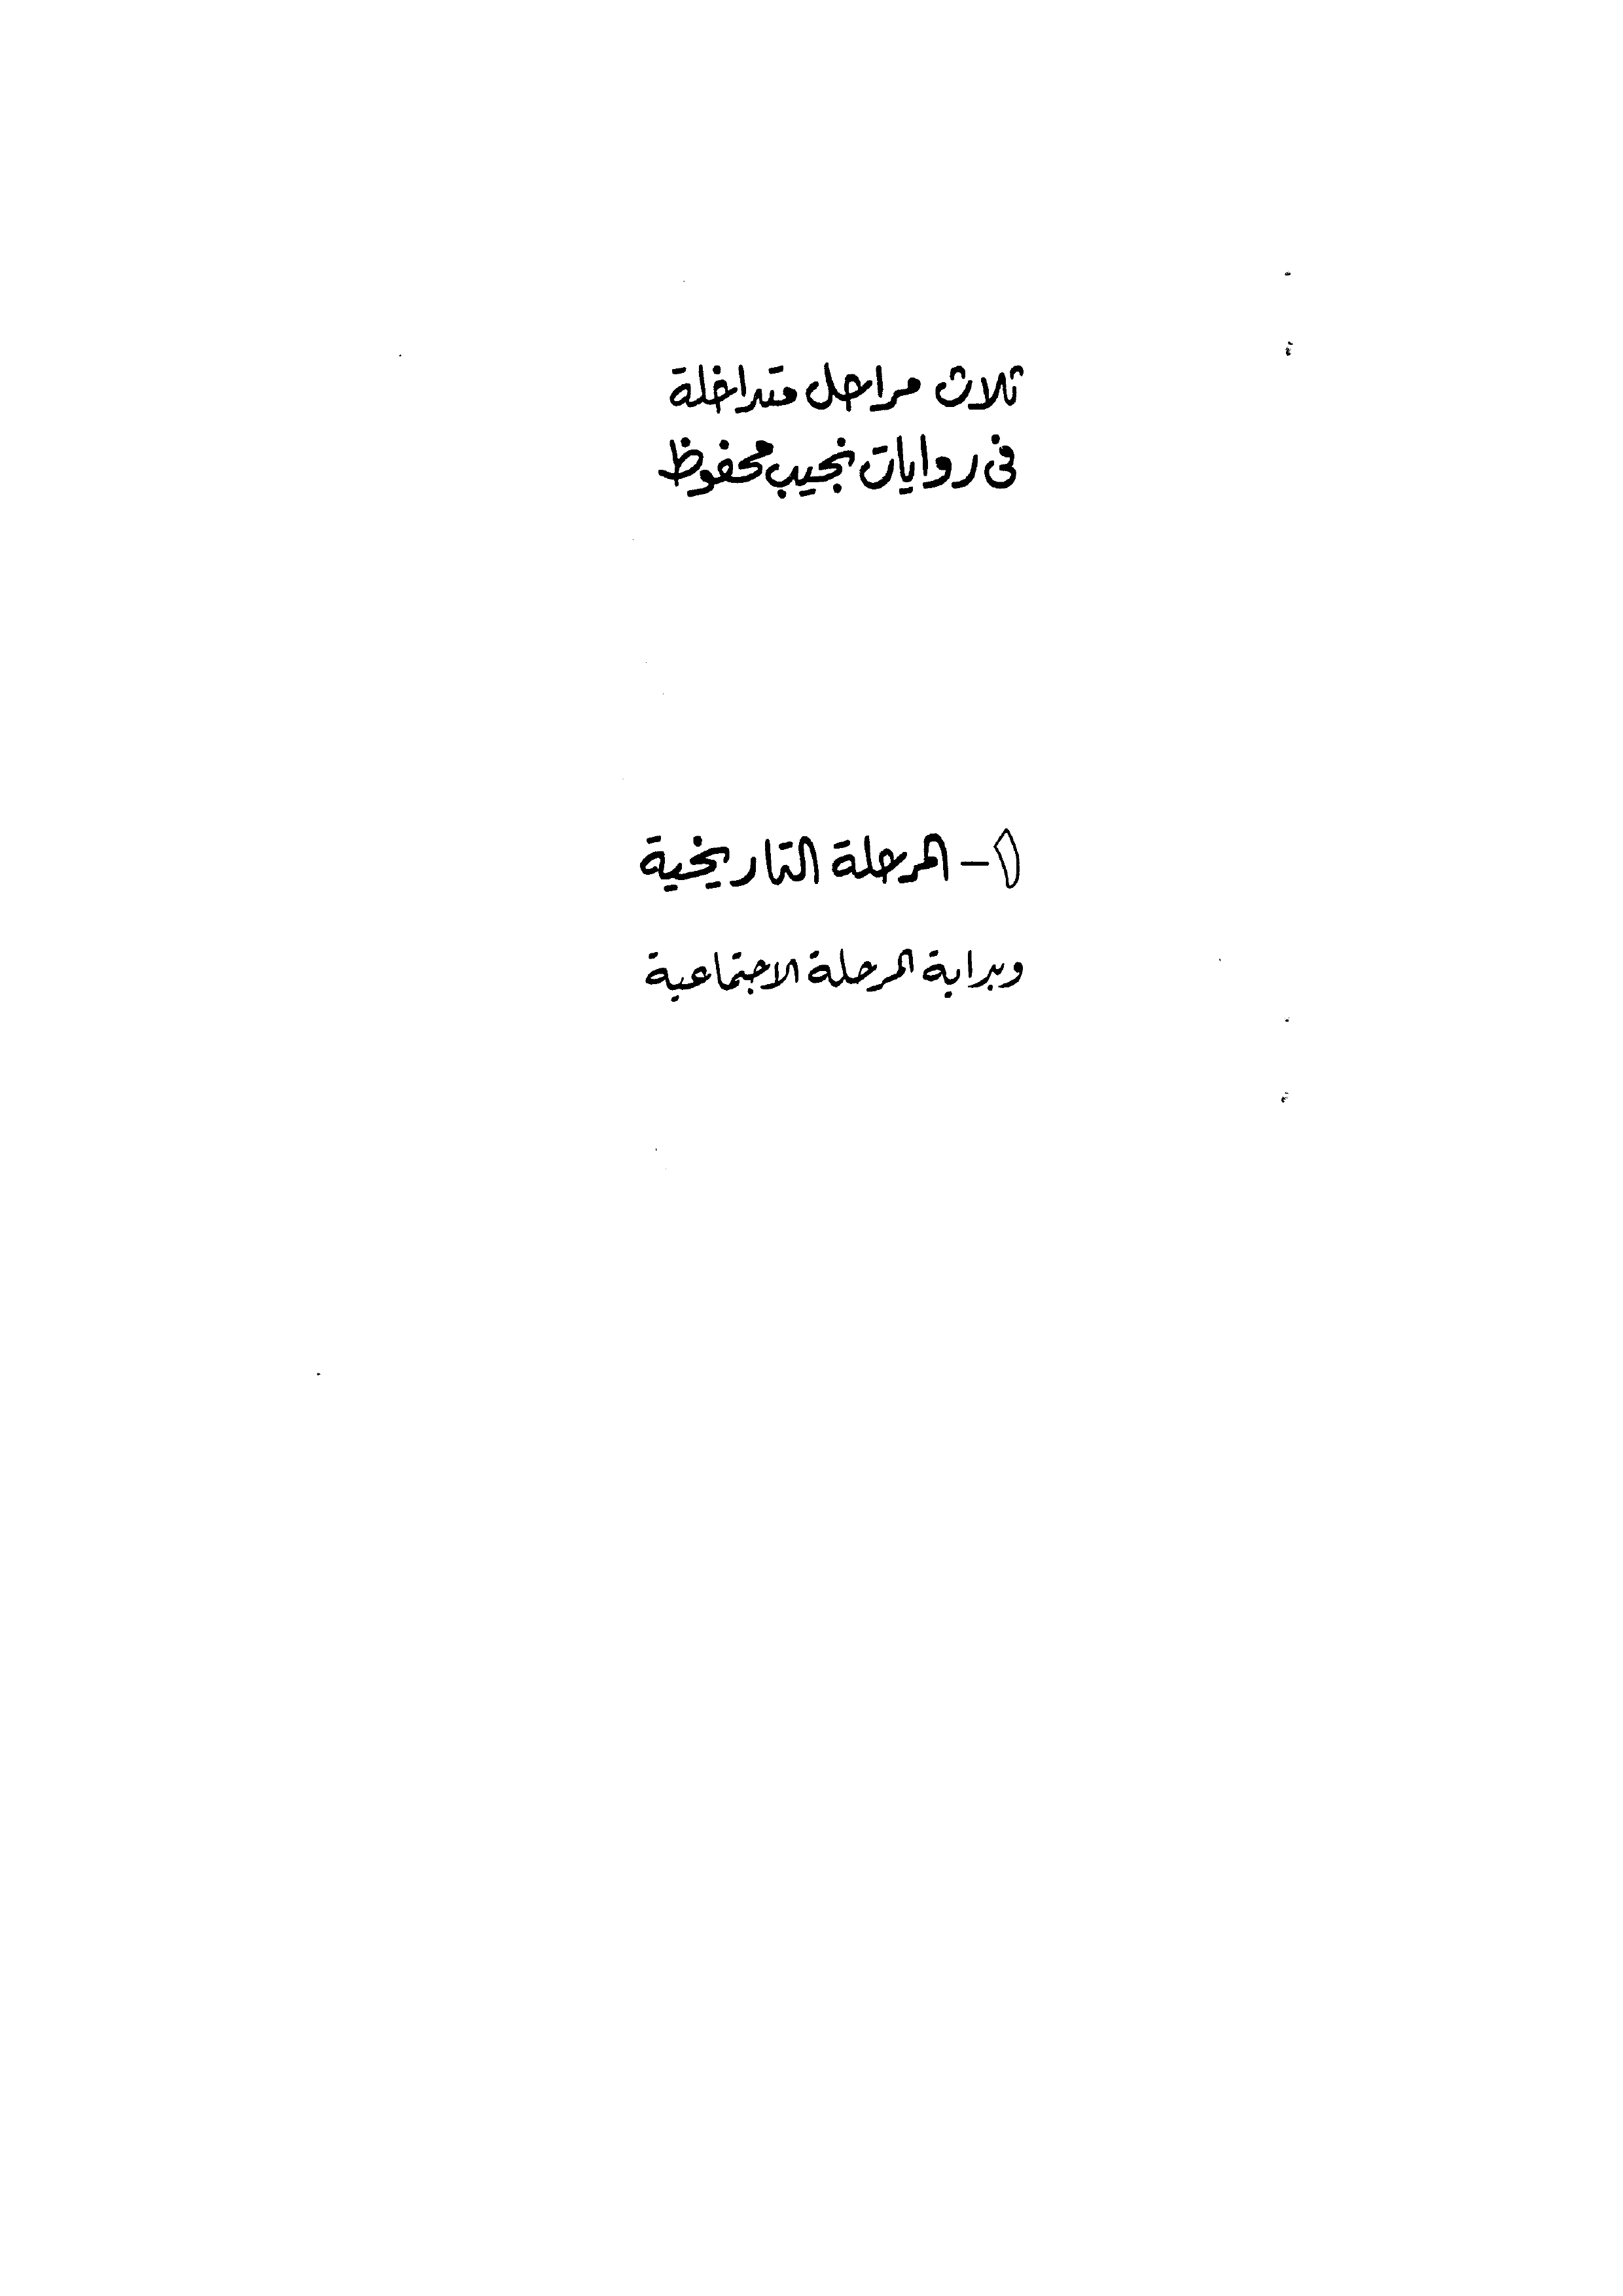 ثلاث مراحل متداخلة
فى روايات نجيب محفوظ
١- المرحلة التاريخية
وبداية المرحلة الاجتماعية